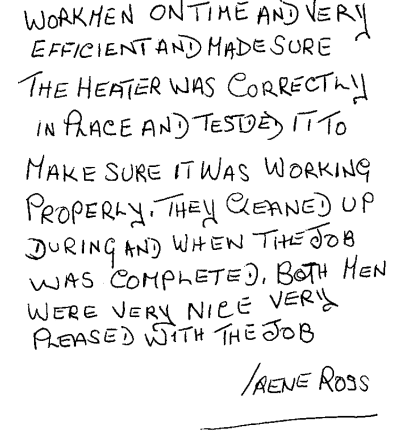 WORKMEN ON TIME AND VERY
EFFICIENT AND MADE SURE
THE HEATER WAS CORRECTLY
IN PLACE AND TESTED IT TO
MAKE SURE IT WAS WORKING
PROPERLY. THEY CLEANED UP
DURING AND WHEN THE JOB
WAS COMPLETED. BOTH MEN
WERE VERY NICE VERY
PLEASED WITH THE JOB
IRENE ROSS